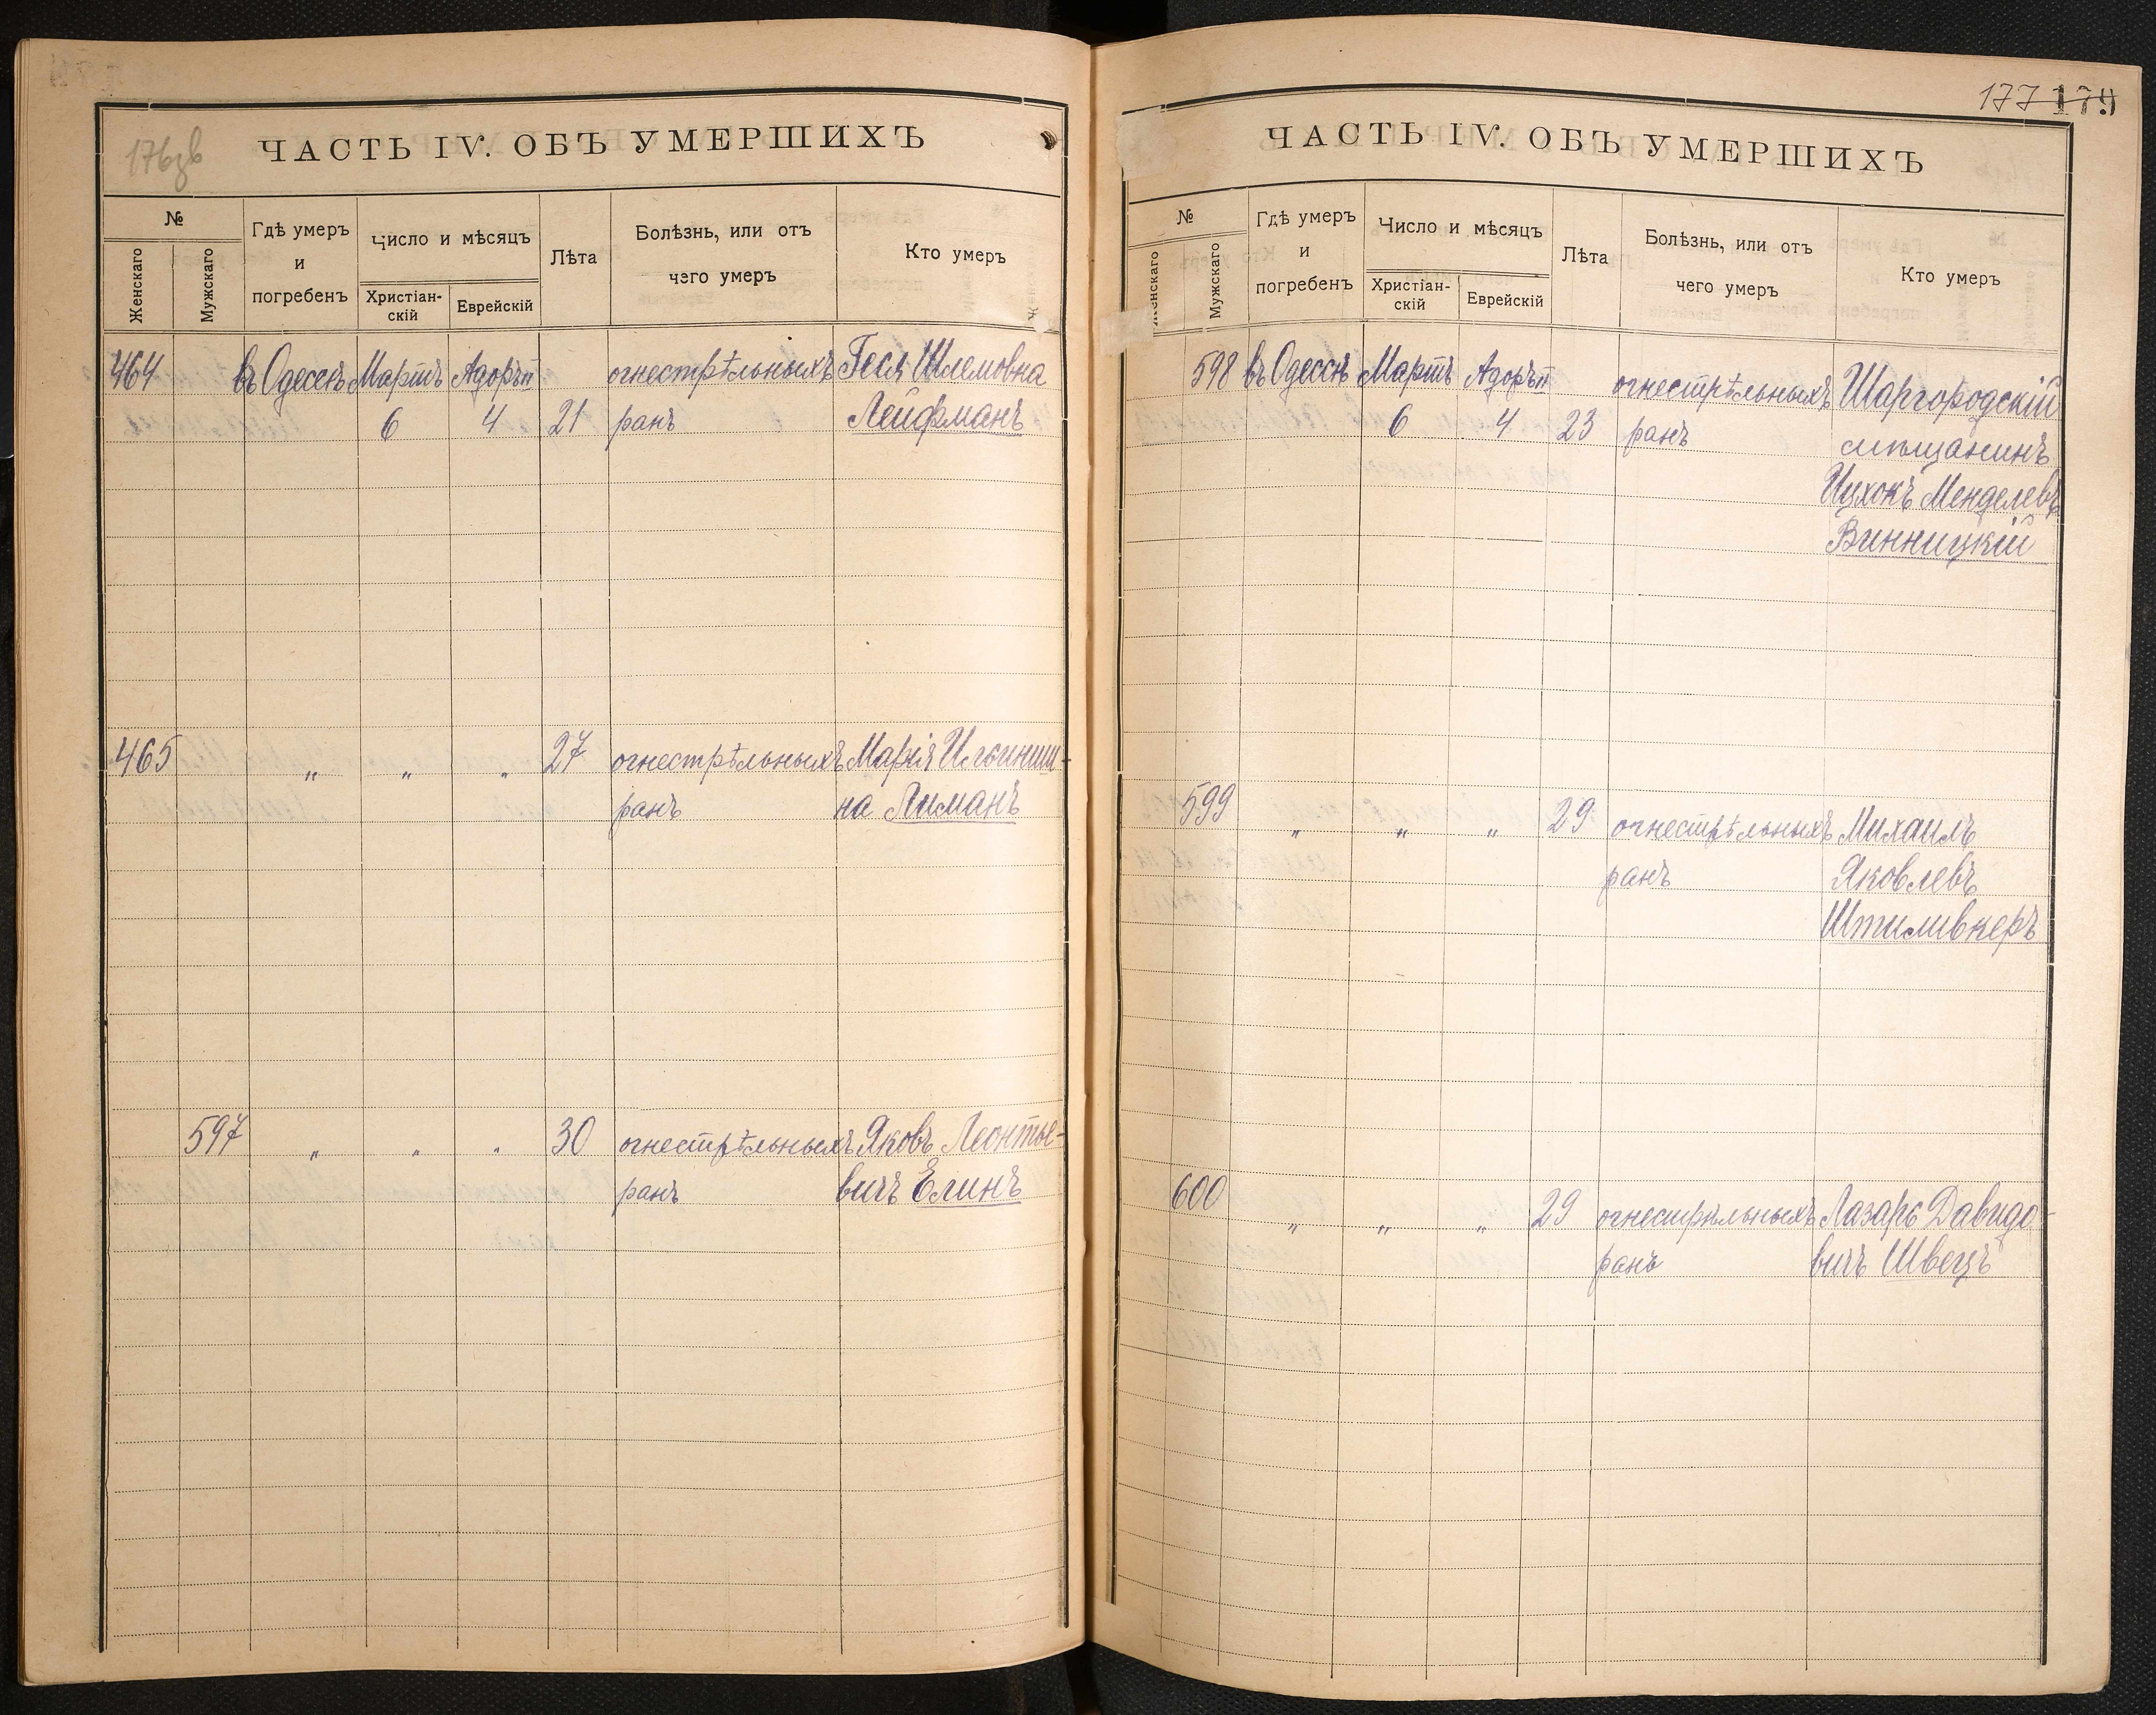 176зв
ЧАСТЬ IV. ОБЪ УМЕРШИХЪ
№
Женскаго
Мужскаго
Гдѣ умеръ
и
погребенъ
Число и мѣсяцъ
Христіан-
скій
Еврейскій
Лѣта
Болѣзнь, или отъ
чего умеръ
Кто умеръ
464 въ Одессѣ Мартъ Адоръ II огнестрѣльныхъ Геся Шлемовна
6 4 21 ранъ Лейфманъ
465 " " " 27 огнестрѣльныхъ Марія
ранъ на Лиманъ
597 " " " 30 огнестрѣльныхъ Яковъ Леонтье-
ранъ вичъ Елинъ
177 179
ЧАСТЬ IV. ОБЪ УМЕРШИХЪ
№
Женскаго
Мужскаго
Гдѣ умеръ
и
погребенъ
Число и мѣсяцъ
Христіан-
скій
Еврейскій
Лѣта
Болѣзнь, или отъ
чего умеръ
Кто умеръ
598 въ Одессѣ Мартъ Адоръ II огнестрѣльныхъ Шаргородскій
6 4 23 ранъ мѣщанинъ
Ицхокъ Менделевъ
Винницкій
599 " " " 29 огнестрѣльныхъ Михаилъ
ранъ Яковлевъ
Штиливкеръ
600 " " " 29 огнестрѣльныхъ Лазарь Давидо-
ранъ вичъ Швецъ